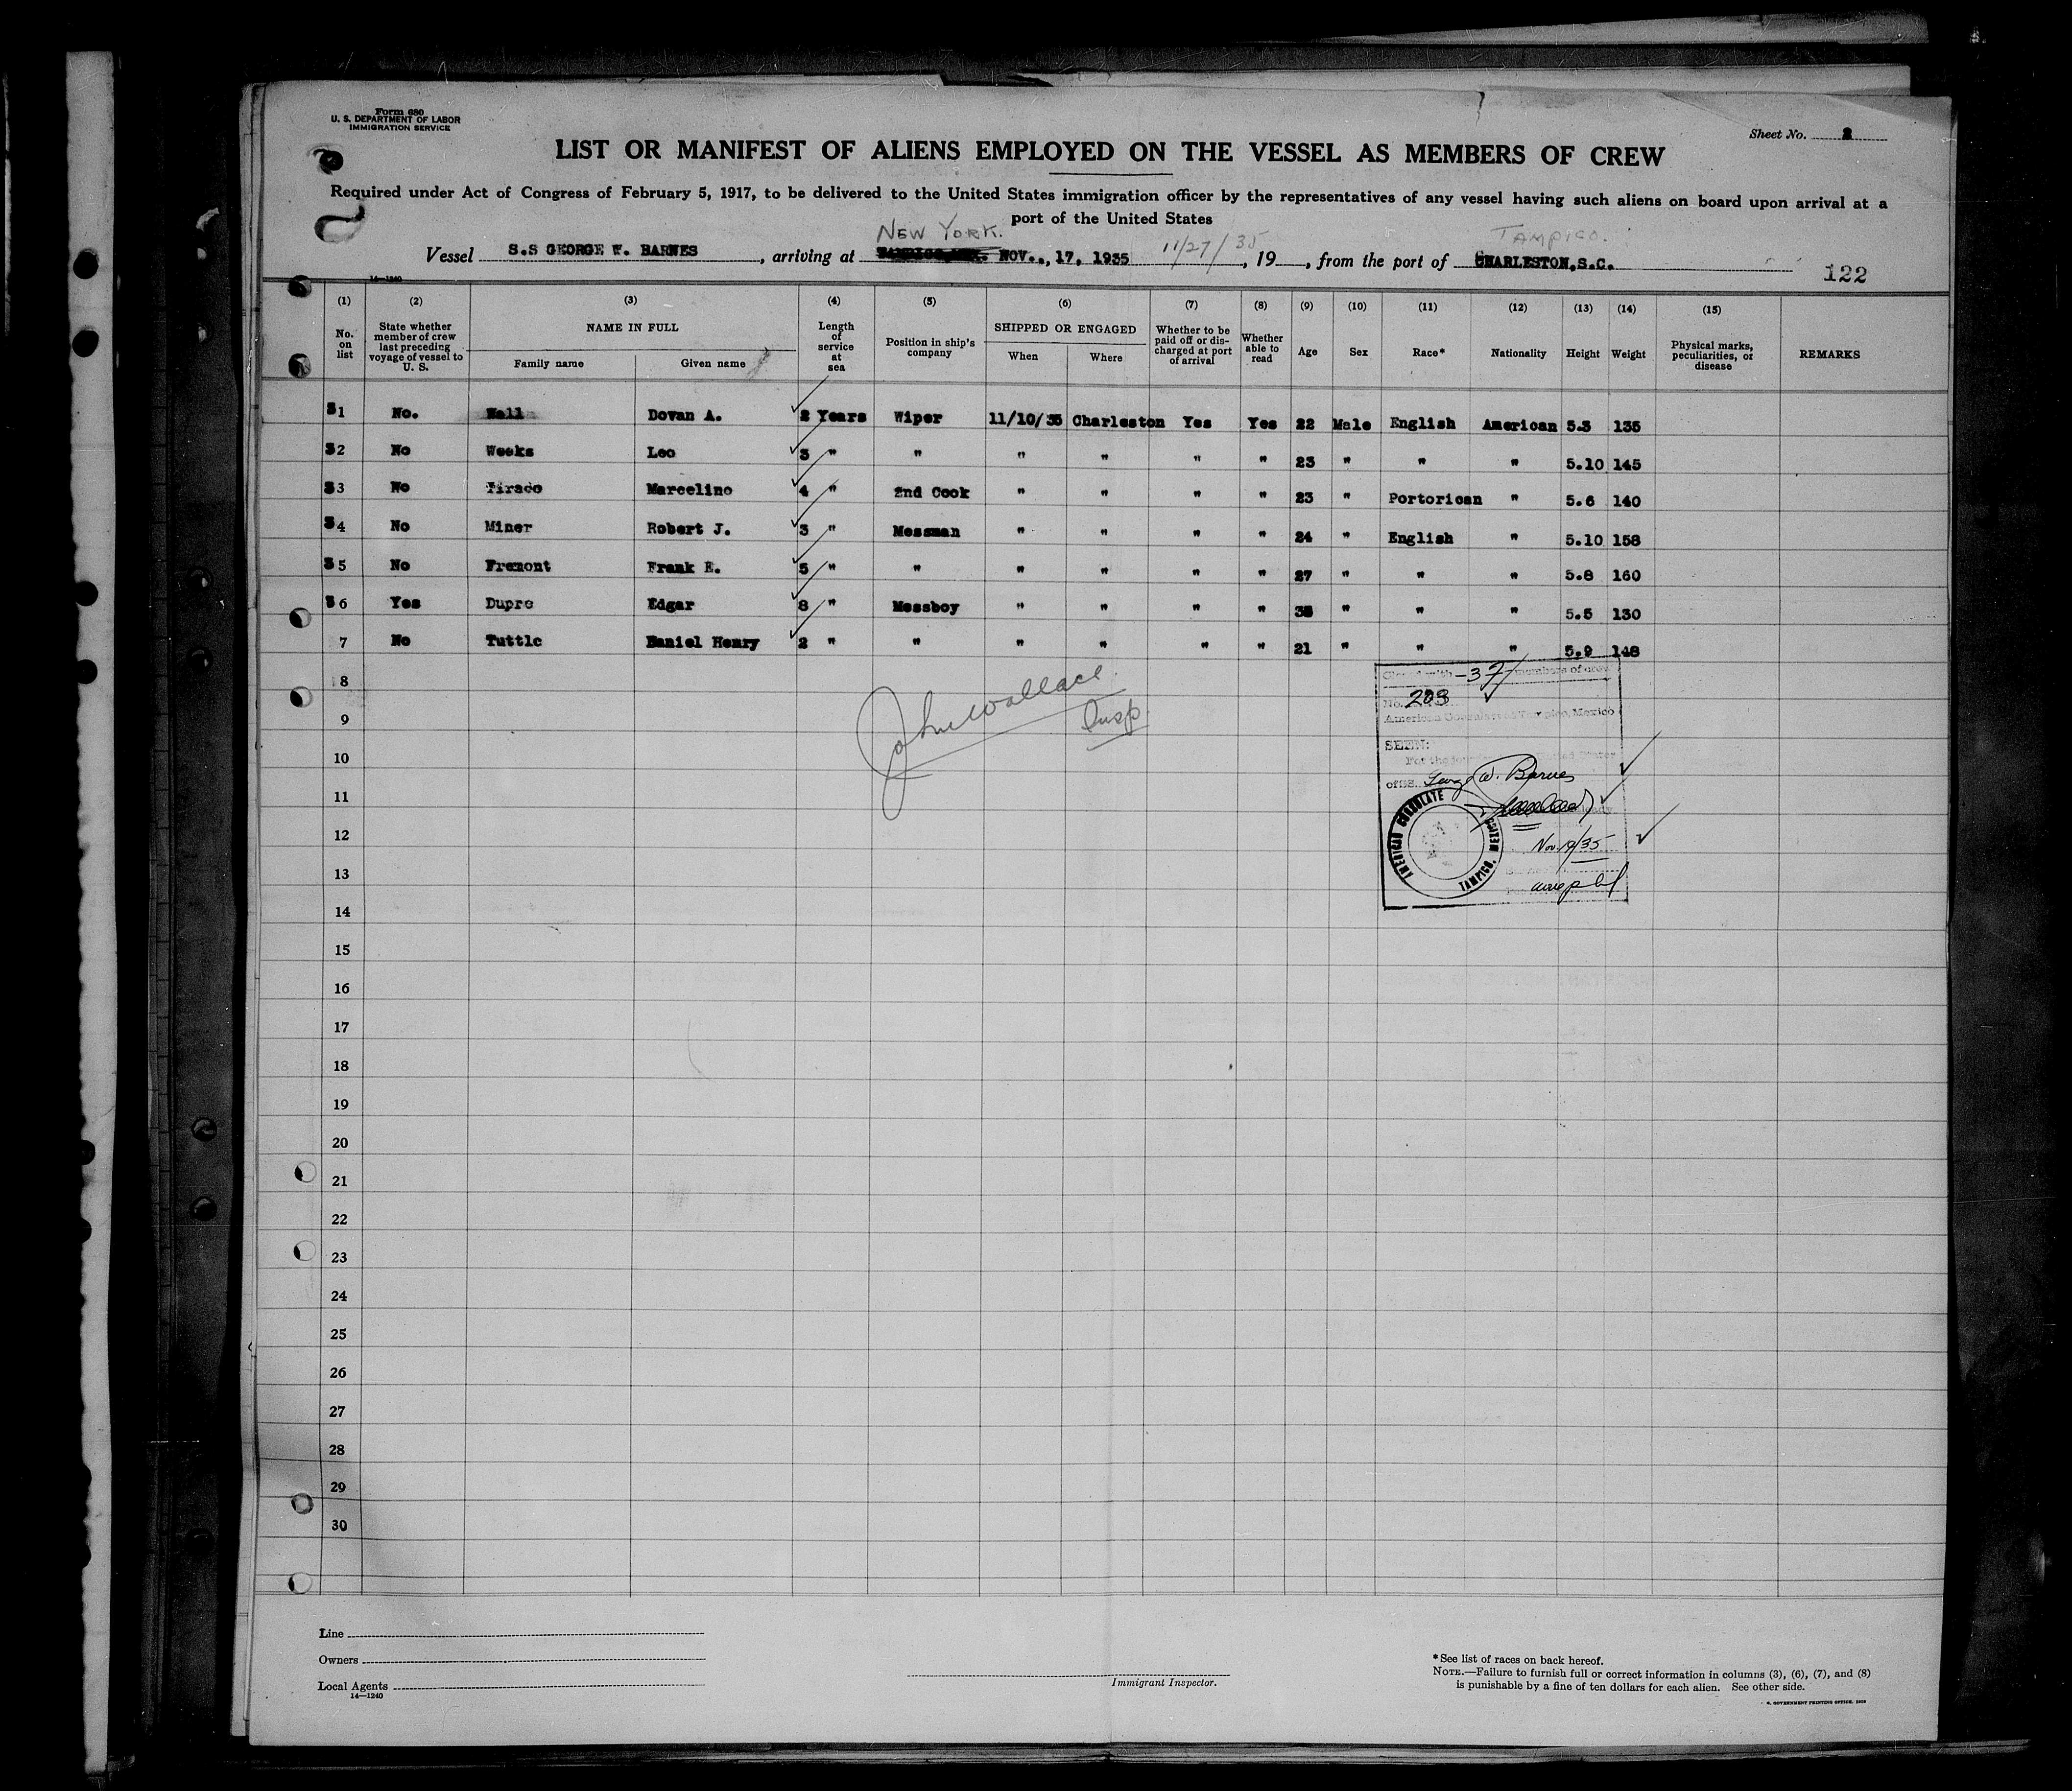 Form 680
U. S. DEPARTMENT OF LABOR
IMMIGRATION SERVICE
Sheet No. 2
LIST OR MANIFEST OF ALIENS EMPLOYED ON THE VESSEL AS MEMBERS OF CREW
Required under Act of Congress of February 5, 1917, to be delivered to the United States immigration officer by the representatives of any vessel having such aliens on board upon arrival at a
port of the United States
NEW YORK. TAMPICO.
Vessel S.S GEORGE W. BARNES, arriving at NOV..,17, 1935 11/27/35, 19, from the port of CHARLESTON,S.C.
122
14—1240
(1) (2) (3) (4) (5) (6) (7) (8) (9) (10) (11) (12) (13) (14) (15)
No. on list State whether member of crew last preceding voyage of vessel to U. S. NAME IN FULL Family name Given name Length of service at sea Position in ship's company SHIPPED OR ENGAGED When Where Whether to be paid off or discharged at port of arrival Whether able to read Age Sex Race* Nationality Height Weight Physical marks, peculiarities, or disease REMARKS
31 No. Wall Dovan A. 2 Years Wiper 11/10/35 Charleston Yes Yes 22 Male English American 5.3 135
32 No Weeks Leo 3 " " " " " " 23 " " " 5.10 145
33 No Tirado Marcelino 4 " 2nd Cook " " " " 23 " Portorican " 5.6 140
34 No Miner Robert J. 3 " Messman " " " " 24 " English " 5.10 158
35 No Fremont Frank E. 5 " " " " " " 27 " " " 5.8 160
36 Yes Dupre Edgar 8 " Messboy " " " " " " " 5.5 130
7 No Tuttle Daniel Henry 2 " " " " " " 21 " " " 5.9 148
8
9
10
11
12
13
14
15
16
17
18
19
20
21
22
23
24
25
26
27
28
29
30
John Wallace
Insp.
with -37 members of crew
No. 203
American Consulate Tampico, Mexico
SEEN:
of SS. George W. Barnes
AMERICAN CONSULATE
TAMPICO, MEXICO
Line
Owners
Local Agents
14—1240
Immigrant Inspector.
*See list of races on back hereof.
NOTE.—Failure to furnish full or correct information in columns (3), (6), (7), and (8)
is punishable by a fine of ten dollars for each alien. See other side.